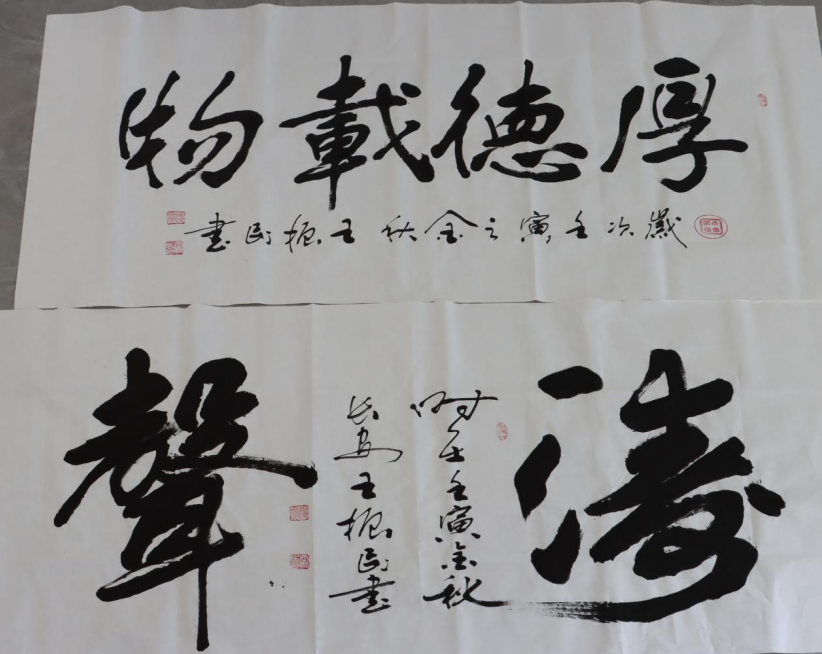 厚德載物
歲次壬寅之金秋王振民書
濤聲
时在壬寅金秋
长安王振民書